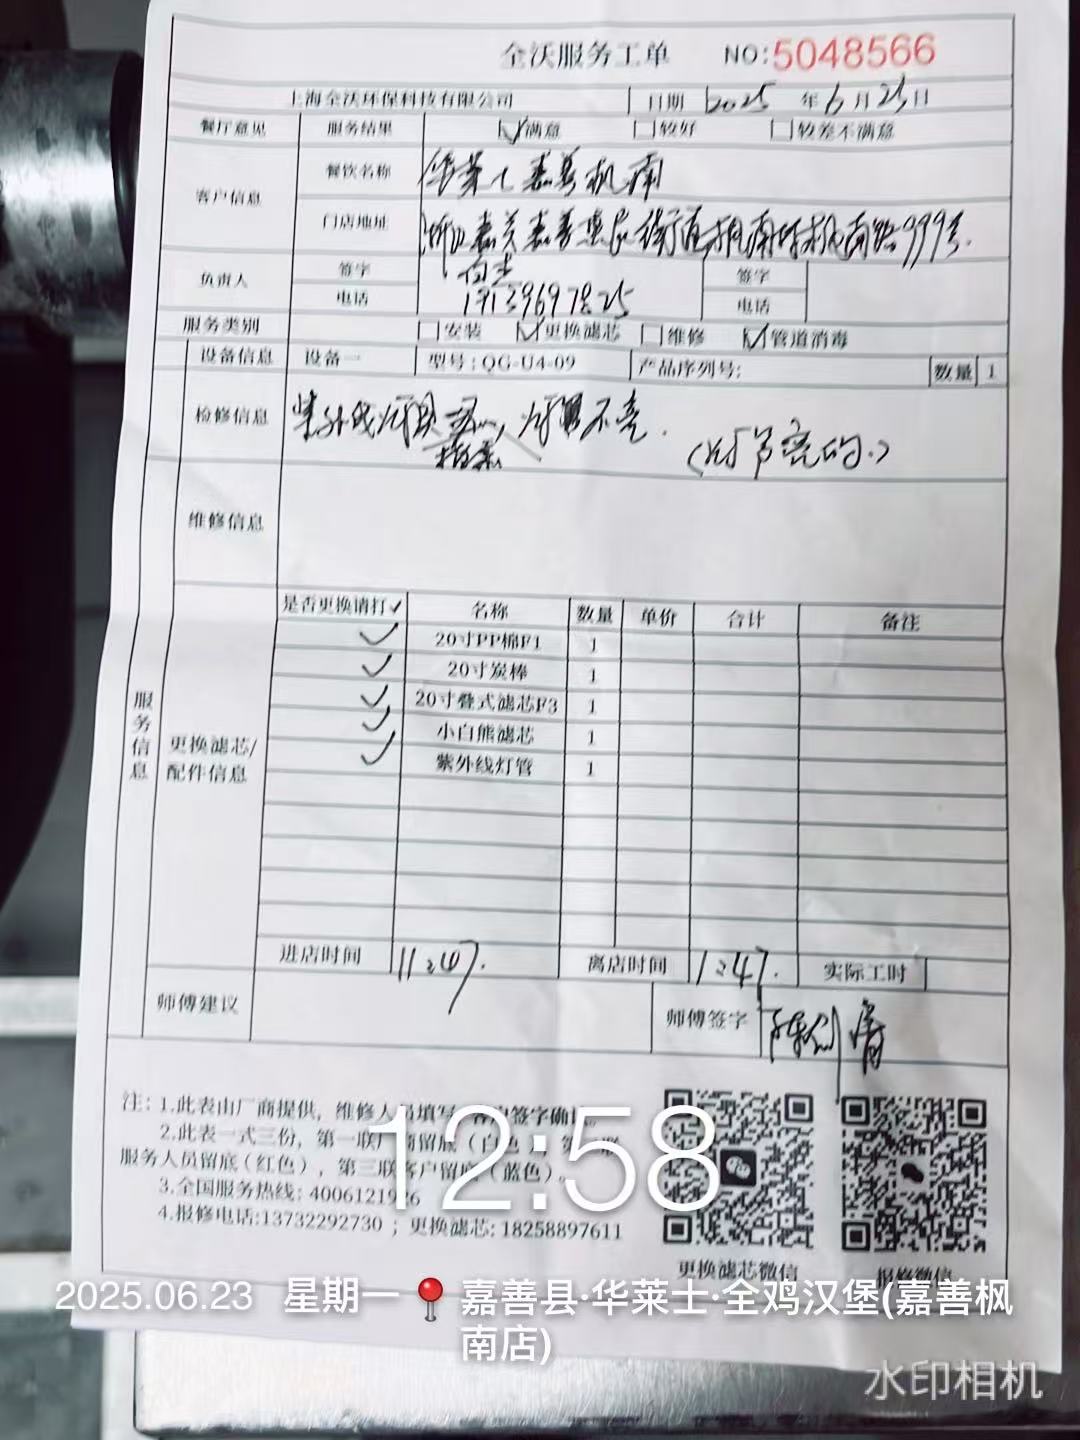 全沃服务工单 NO:5048566
上海全沃环保科技有限公司 日期 2025 年 6 月 23 日
餐厅意见 服务结果 ☑满意 □较好 □较差不满意
客户信息 餐饮名称 华莱士嘉善枫南
门店地址 浙江嘉兴嘉善惠民街道枫南村枫南路999号.
负责人 签字 签字
电话 电话
服务类别 □安装 ☑更换滤芯 □维修 ☑管道消毒
设备信息 设备一 型号:QG-U4-09 产品序列号: 数量 1
检修信息 紫外线灯具 灯管不亮.
(灯 亮的.)
维修信息
服务信息
更换滤芯/
配件信息
是否更换请打✓ 名称 数量 单价 合计 备注
✓ 20寸PP棉F1 1
✓ 20寸炭棒 1
✓ 20寸叠式滤芯F3 1
✓ 小白熊滤芯 1
✓ 紫外线灯管 1
进店时间 11:47. 离店时间 1:47. 实际工时
师傅建议 师傅签字
注: 1.此表由厂商提供, 维修人员填写
2.此表一式三份, 第一联厂商留底(白色)
服务人员留底(红色), 第三联客户留底(蓝色)。
3.全国服务热线: 4006121926
4.报修电话:13732292730 ; 更换滤芯: 18258897611
更换滤芯微信 报修微信
12:58
2025.06.23 星期一 嘉善县·华莱士·全鸡汉堡(嘉善枫
南店)
水印相机